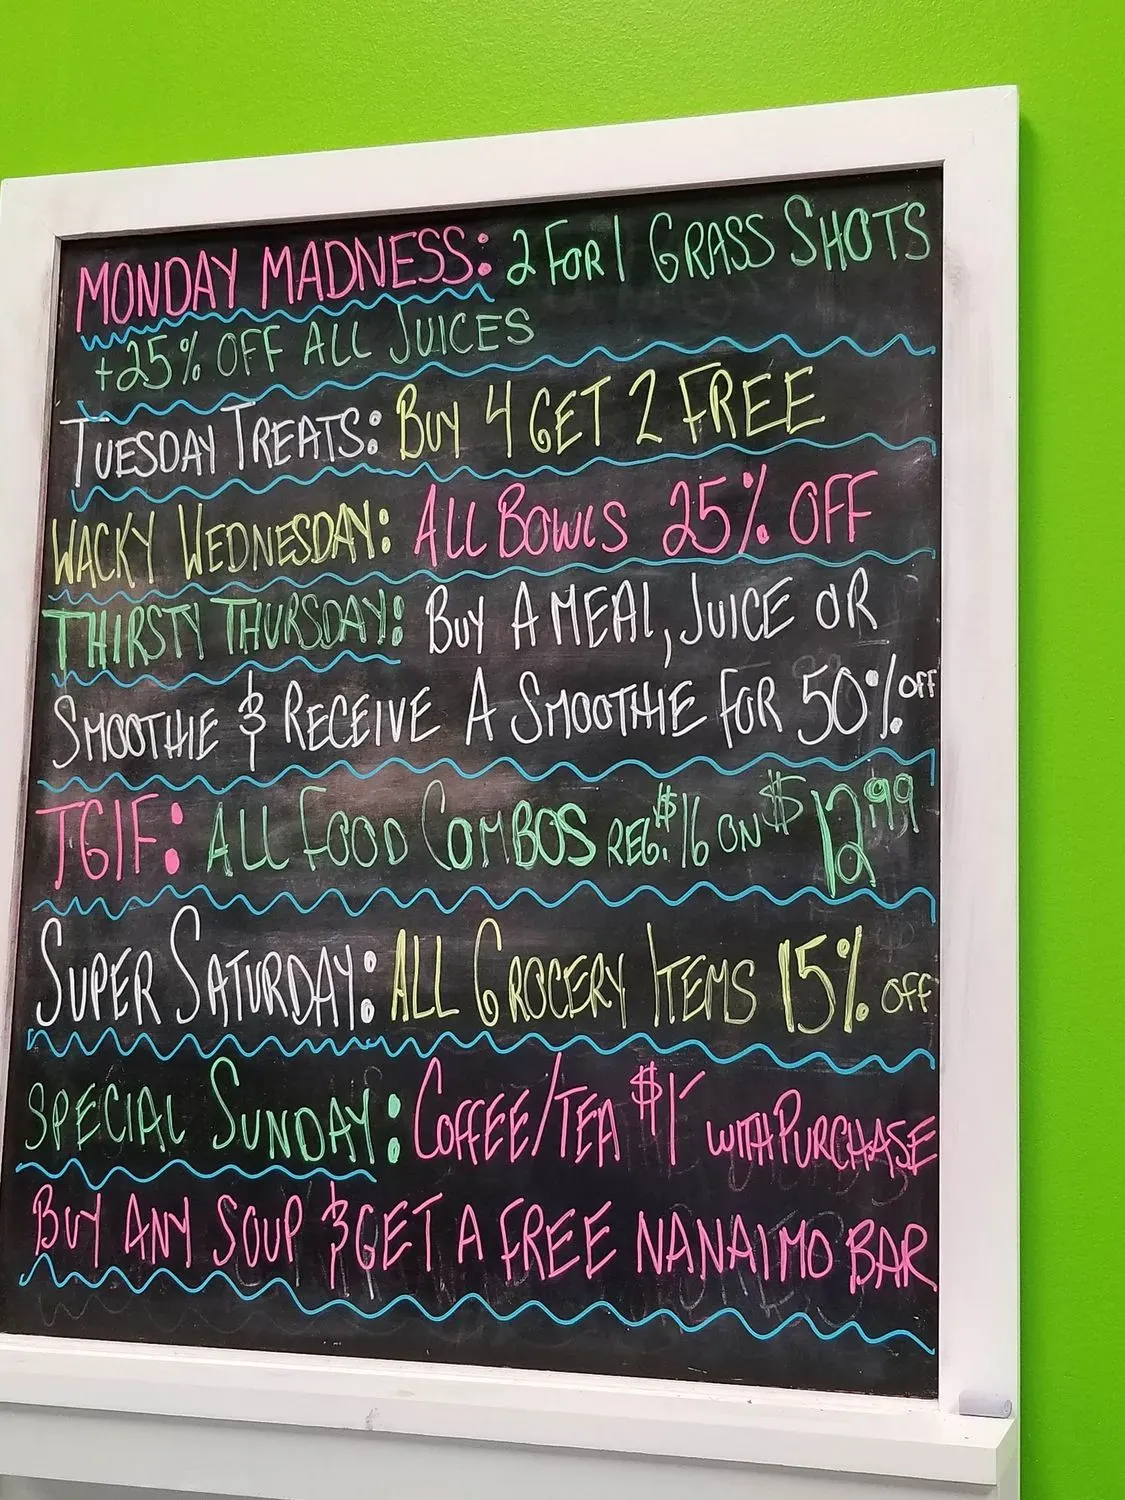 MONDAY MADNESS: 2 FOR 1 GRASS SHOTS
+25% OFF ALL JUICES
TUESDAY TREATS: BUY 4 GET 2 FREE
WACKY WEDNESDAY: ALL BOWLS 25% OFF
THIRSTY THURSDAY: BUY A MEAL, JUICE OR
SMOOTHIE & RECEIVE A SMOOTHIE FOR 50% OFF
TGIF: ALL FOOD COMBOS REG. $16 ON $12.99
SUPER SATURDAY: ALL GROCERY ITEMS 15% OFF
SPECIAL SUNDAY: COFFEE/TEA $1 WITH PURCHASE
BUY ANY SOUP & GET A FREE NANAIMO BAR